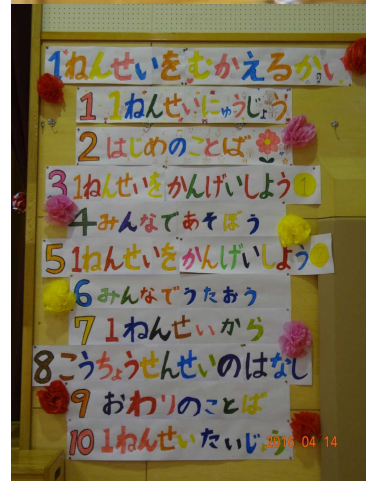 1ねんせいをむかえるかい
1 1ねんせいにゅうじょう
2 はじめのことば
3 1ねんせいをかんげいしよう①
4 みんなであそぼう
5 1ねんせいをかんげいしよう
6 みんなでうたおう
7 1ねんせいから
8 こうちょうせんせいのはなし
9 おわりのことば
10 1ねんせいたいじょう
2016 04 14